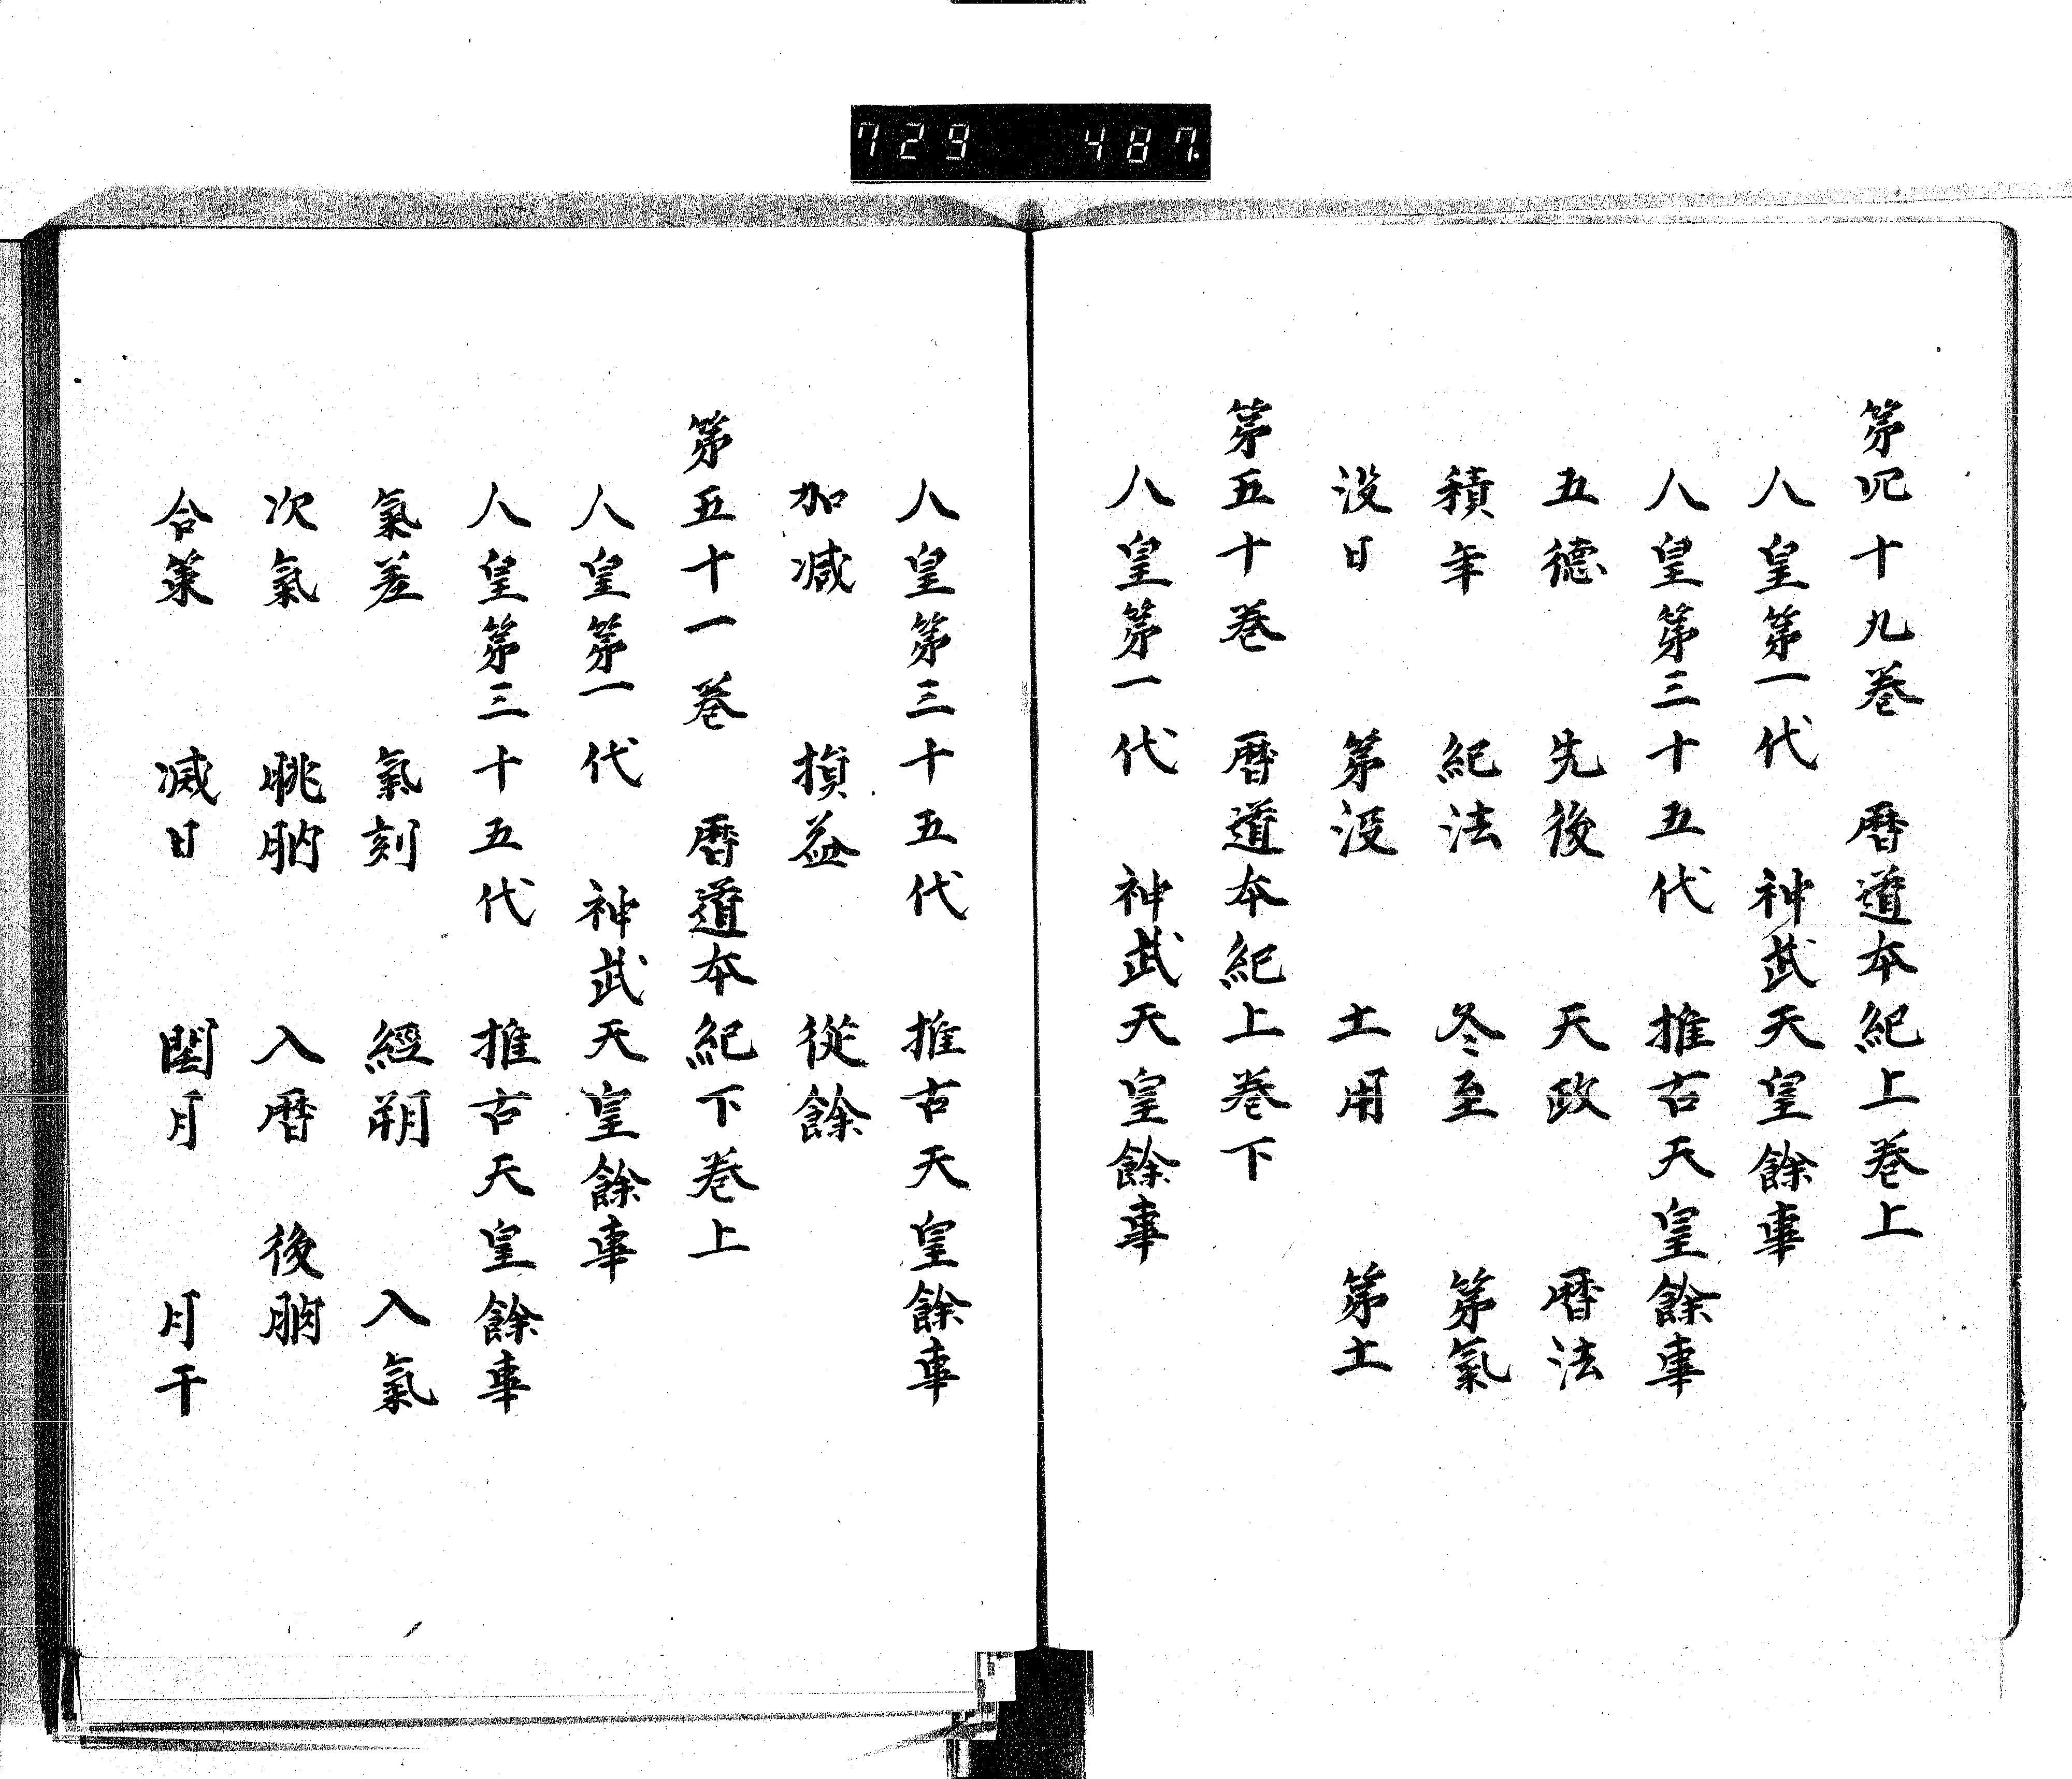 729 487
第四十九巻 暦道本紀上巻上
人皇第一代 神武天皇餘事
人皇第三十五代 推古天皇餘事
五德 先後 天政 暦法
積年 紀法 冬至 第氣
没日 第没 土用 第土
第五十巻 暦道本紀上巻下
人皇第一代 神武天皇餘事
人皇第三十五代 推古天皇餘事
加減 損益 從餘
第五十一巻 暦道本紀下巻上
人皇第一代 神武天皇餘事
人皇第三十五代 推古天皇餘事
氣差 氣刻 經朔 入氣
次氣 朓朒 入暦 後朒
合策 減日 閏月 月干